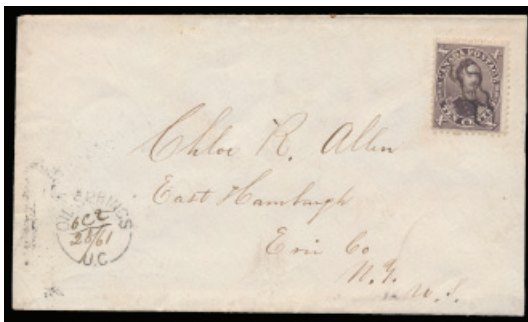 CANADA POSTAGE
Chloe R. Allen
East Hamburgh
Erie Co
N.Y.
U.S.
OIL SPRINGS
Oct
28/61
U.C